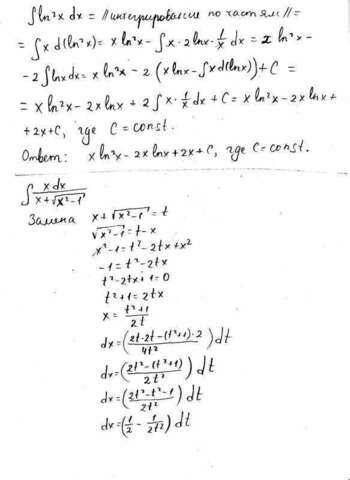 ∫ln²x dx = //интегрирование по частям// =
= ∫x d(ln²x) = x ln²x - ∫x · 2lnx · 1/x dx = x ln²x -
- 2∫lnx dx = x ln²x - 2 (x lnx - ∫x d(lnx)) + C =
= x ln²x - 2x lnx + 2∫x · 1/x dx + C = x ln²x - 2x lnx +
+ 2x + C, где C = const.
Ответ: x ln²x - 2x lnx + 2x + C, где C = const.
∫ x dx / (x + √(x²-1))
Замена x + √(x²-1) = t
√(x²-1) = t - x
x² - 1 = t² - 2tx + x²
-1 = t² - 2tx
t² - 2tx + 1 = 0
t² + 1 = 2tx
x = (t²+1)/2t
dx = ((2t·2t - (t²+1)·2)/4t²) dt
dx = ((2t² - (t²+1))/2t²) dt
dx = ((2t² - t² - 1)/2t²) dt
dx = (1/2 - 1/2t²) dt